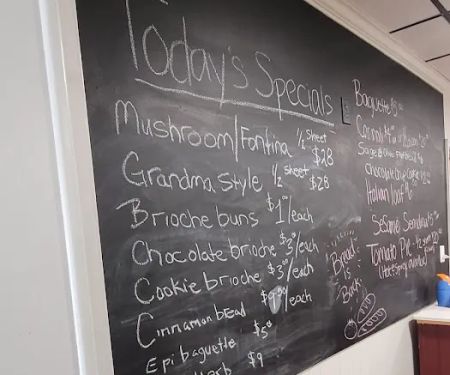 Today's Specials
Mushroom/Fontina ½ sheet $28
Grandma Style ½ sheet $28
Brioche buns $1⁰⁰/each
Chocolate brioche $3⁰⁰/each
Cookie brioche $3⁰⁰/each
Cinnamon bread /each
Epi baguette $5⁰⁰
Herb $9
Baguette
Chocolate Chip Cookie
Italian loaf
Sesame Semolina
Tomato Pie
"Bread
is
Back"